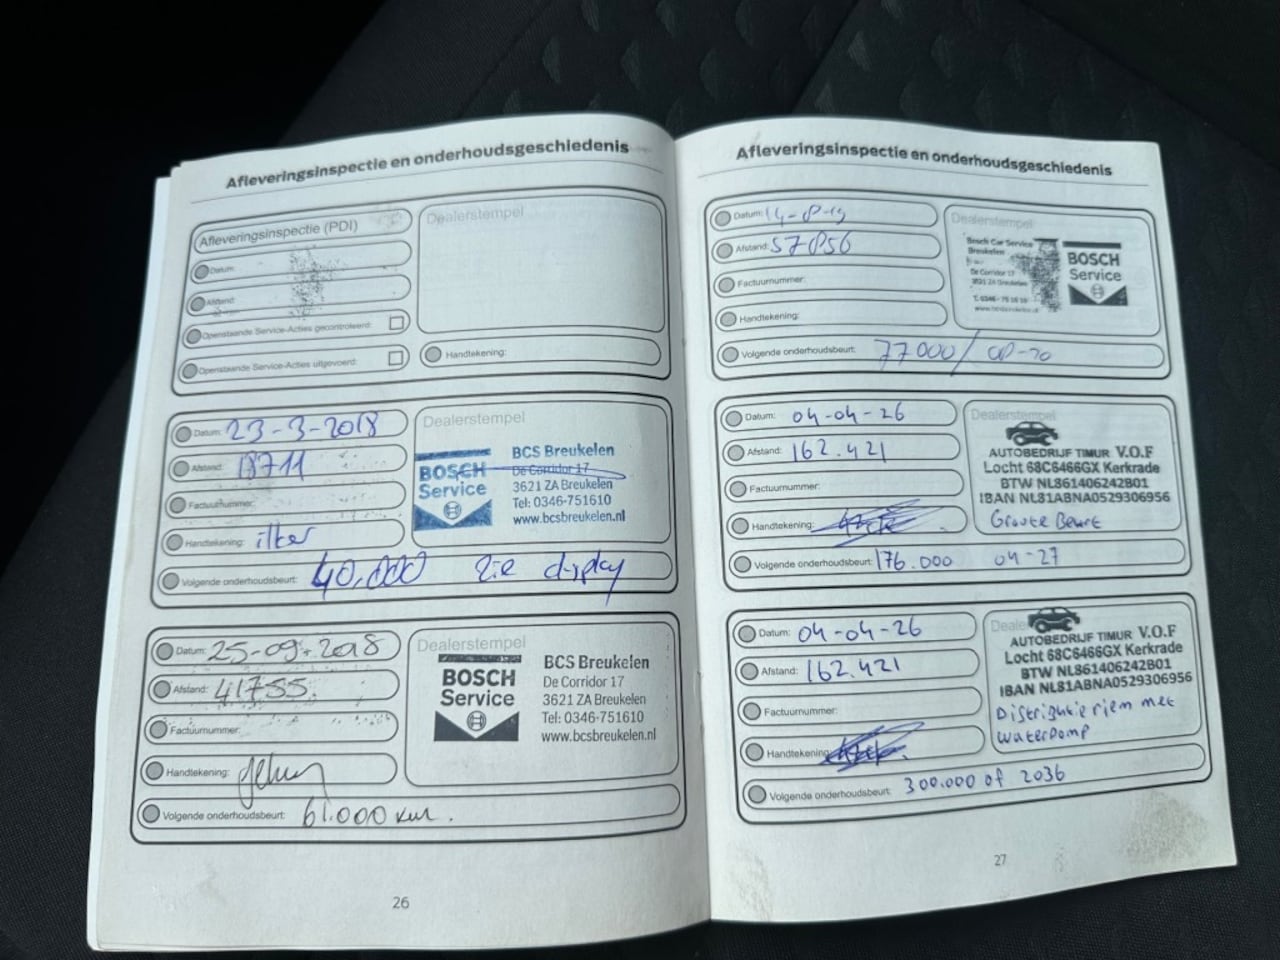 Afleveringsinspectie en onderhoudsgeschiedenis
Afleveringsinspectie (PDI)
Datum:
Afstand:
Openstaande Service-Acties gecontroleerd:
Openstaande Service-Acties uitgevoerd:
Dealerstempel
Handtekening:
Datum: 23-3-2018
Afstand: 18711
Factuurnummer:
Handtekening: ilker
Volgende onderhoudsbeurt: 40.000 zie display
Dealerstempel
BOSCH
Service
BCS Breukelen
De Corridor 17
3621 ZA Breukelen
Tel: 0346-751610
www.bcsbreukelen.nl
Datum: 25-09-2018
Afstand: 41755
Factuurnummer:
Handtekening:
Volgende onderhoudsbeurt: 61.000 km.
Dealerstempel
BOSCH
Service
BCS Breukelen
De Corridor 17
3621 ZA Breukelen
Tel: 0346-751610
www.bcsbreukelen.nl
26
Afleveringsinspectie en onderhoudsgeschiedenis
Datum: 14-8-19
Afstand: 57856
Factuurnummer:
Handtekening:
Volgende onderhoudsbeurt: 77000/
Dealerstempel
Bosch Car Service
Breukelen
De Corridor 17
3621 ZA Breukelen
BOSCH
Service
Datum: 04-04-26
Afstand: 162.421
Factuurnummer:
Handtekening:
Volgende onderhoudsbeurt: 176.000 04-27
Dealerstempel
AUTOBEDRIJF TIMUR V.O.F
Locht 68C6466GX Kerkrade
BTW NL861406242B01
IBAN NL81ABNA0529306956
Groote Beurt
Datum: 04-04-26
Afstand: 162.421
Factuurnummer:
Handtekening:
Volgende onderhoudsbeurt: 300.000 of 2036
Deale
AUTOBEDRIJF TIMUR V.O.F
Locht 68C6466GX Kerkrade
BTW NL861406242B01
IBAN NL81ABNA0529306956
Distributie riem met
waterpomp
27